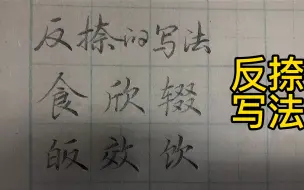 反捺的写法
食欣辍
皈效饮
反捺
写法